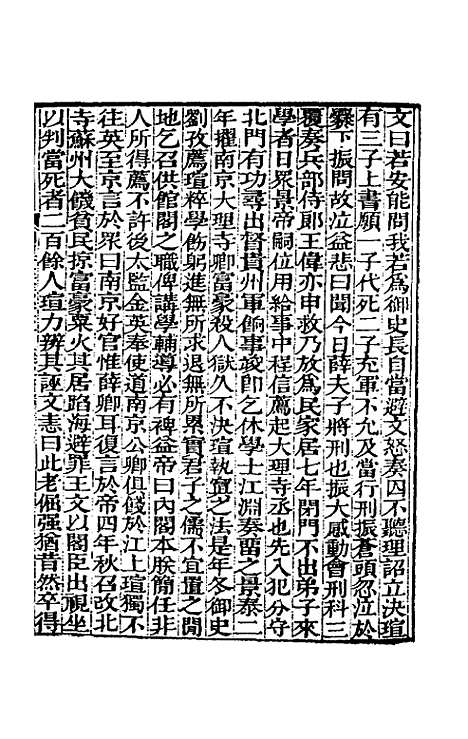 文曰若安能問我若爲御史長自當避文怒奏囚不聽理詔立決瑄
有三子上書願一子代死二子充軍不允及當行刑振蒼頭忽泣於
爨下振問故泣益悲曰聞今日薛夫子將刑也振大感動會刑科三
覆奏兵部侍郎王偉亦申救乃放爲民家居七年閉門不出弟子來
學者日眾景帝嗣位用給事中程信薦起大理寺丞也先入犯分守
北門有功尋出督貴州軍餉事竣卽乞休學士江淵奏留之景泰二
年擢南京大理寺卿富豪殺人獄久不決瑄執寘之法是年冬御史
劉孜薦瑄粹學飭躬進無所求退無所累實君子之儒不宜置之閒
地乞召供館閣之職俾講學輔導必有裨益帝曰內閣本朕簡任非
人所得薦不許後太監金英奉使道南京公卿俱餞於江上瑄獨不
往英至京言於眾曰南京好官惟薛卿耳復言於帝四年秋召改北
寺蘇州大饑貧民掠富豪粟火其居蹈海避罪王文以閣臣出視坐
以判當死者二百餘人瑄力辨其誣文恚曰此老倔强猶昔然卒得